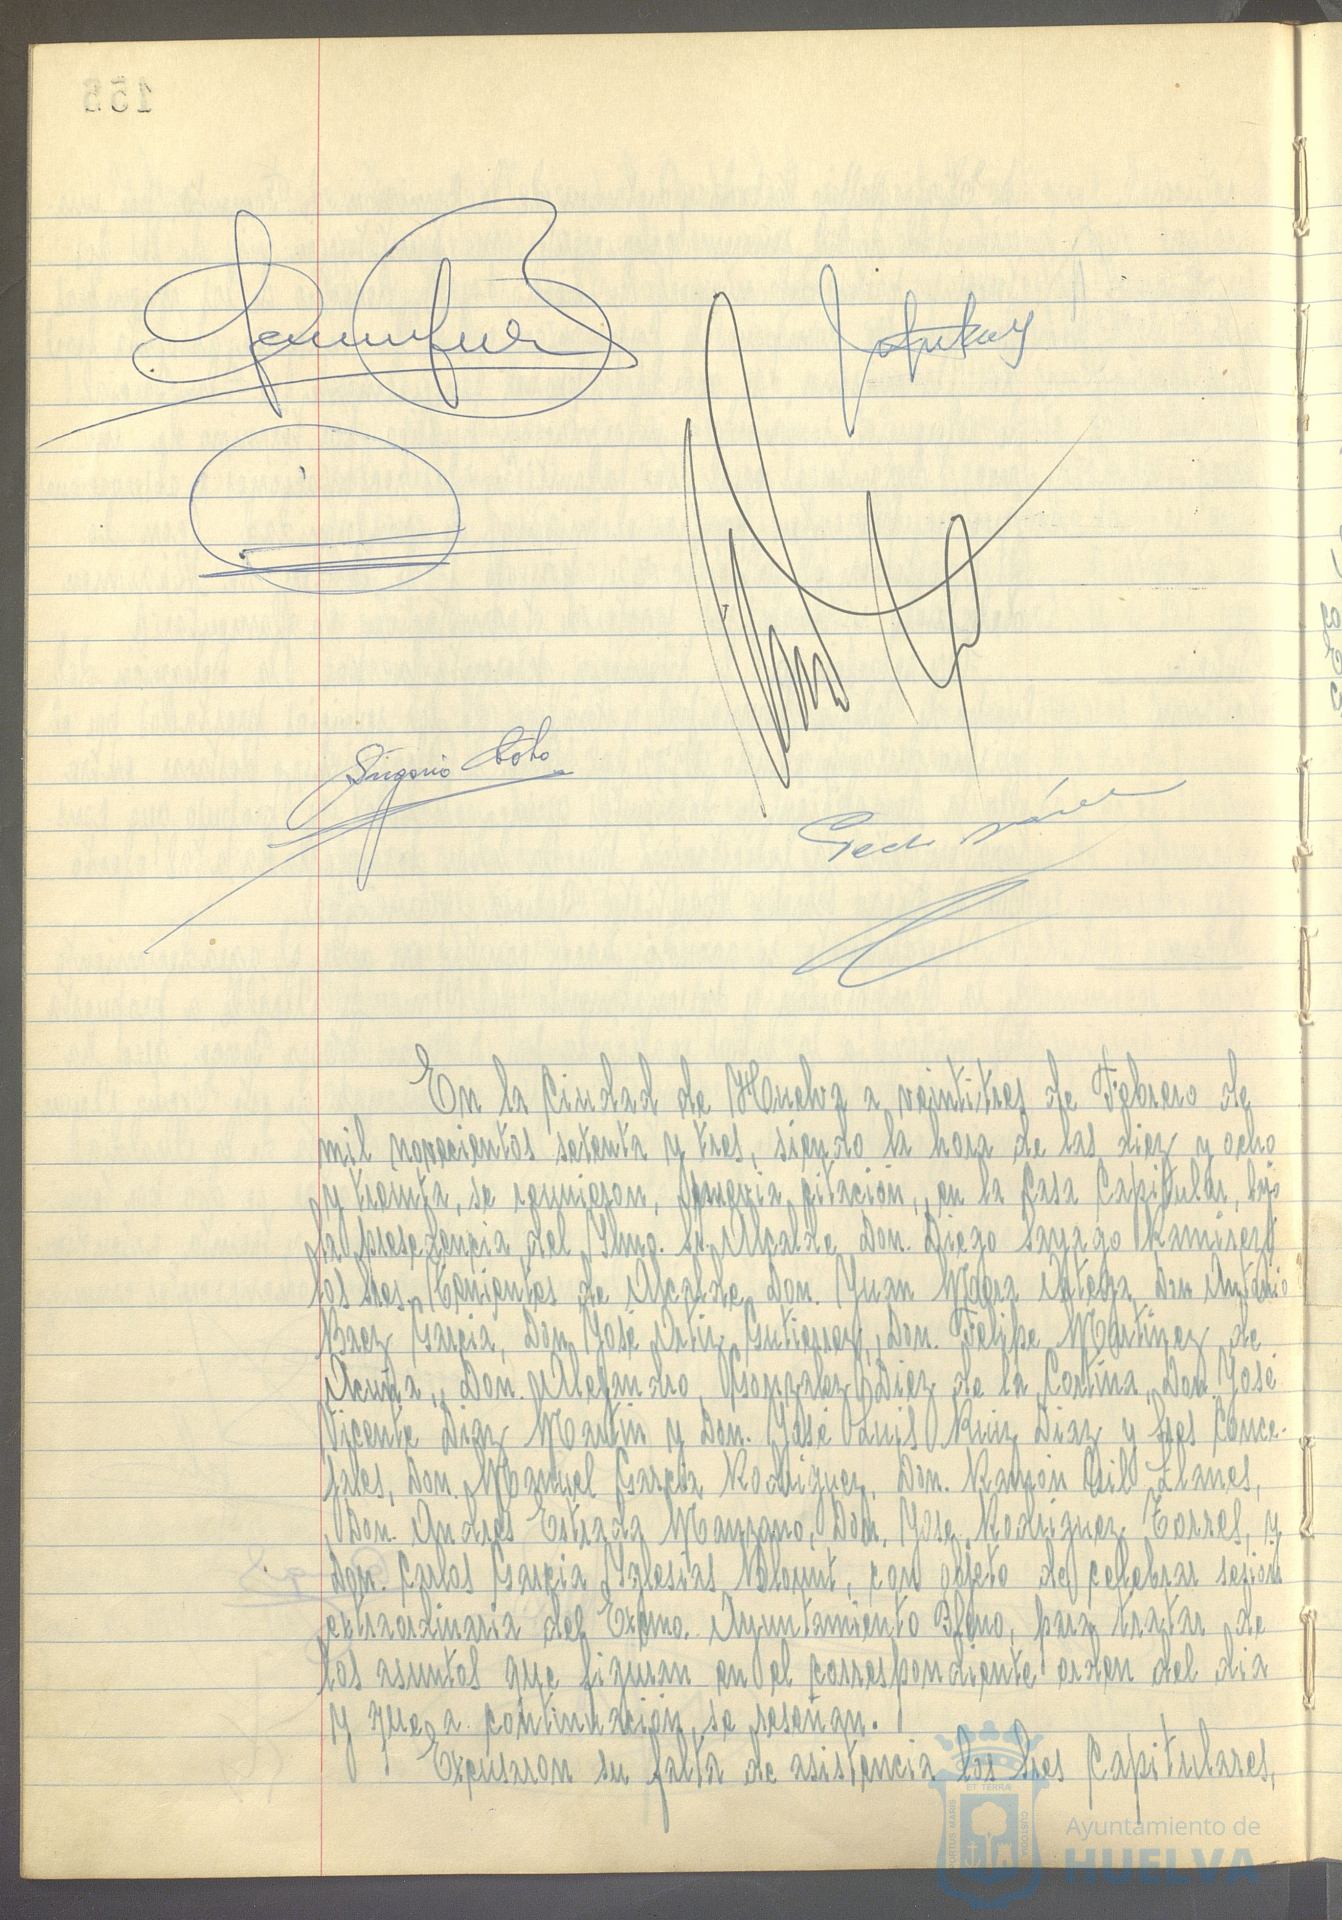 Gregorio Soto
En la Ciudad de Huelva a veintitres de Febrero de
mil novecientos setenta y tres, siendo la hora de las diez y ocho
y treinta, se reunieron, previa citación, en la Casa Capitular, bajo
la presedencia del Iltmo. Sr. Alcalde Don. Diego Sayago Ramirez,
los Sres. Tenientes de Alcalde, Don. Juan Mora Don Antonio
Baez Garcia, Don José Ortiz Gutierrez, Don. Felipe Martinez de
Acuña, Don. Alejandro Gonzalez Diez de la Cortina, Don. José
Vicente Diaz Martín y Don. José Luis Ruiz Diaz y Sres Conce-
jales, Don. Manuel García Rodriguez, Don. Ramón Gil Llanes,
Don. Andres Estrada Manzano, Don. José Rodriguez Torres, y
Don. Carlos Garcia Iglesias con objeto de celebrar sesión
extraordinaria del Excmo. Ayuntamiento Pleno, para tratar de
los asuntos que figuran en el correspondiente orden del dia
y que a continuación se reseñan.
Excusaron su falta de asistencia los Sres Capitulares,
Ayuntamiento de
HUELVA